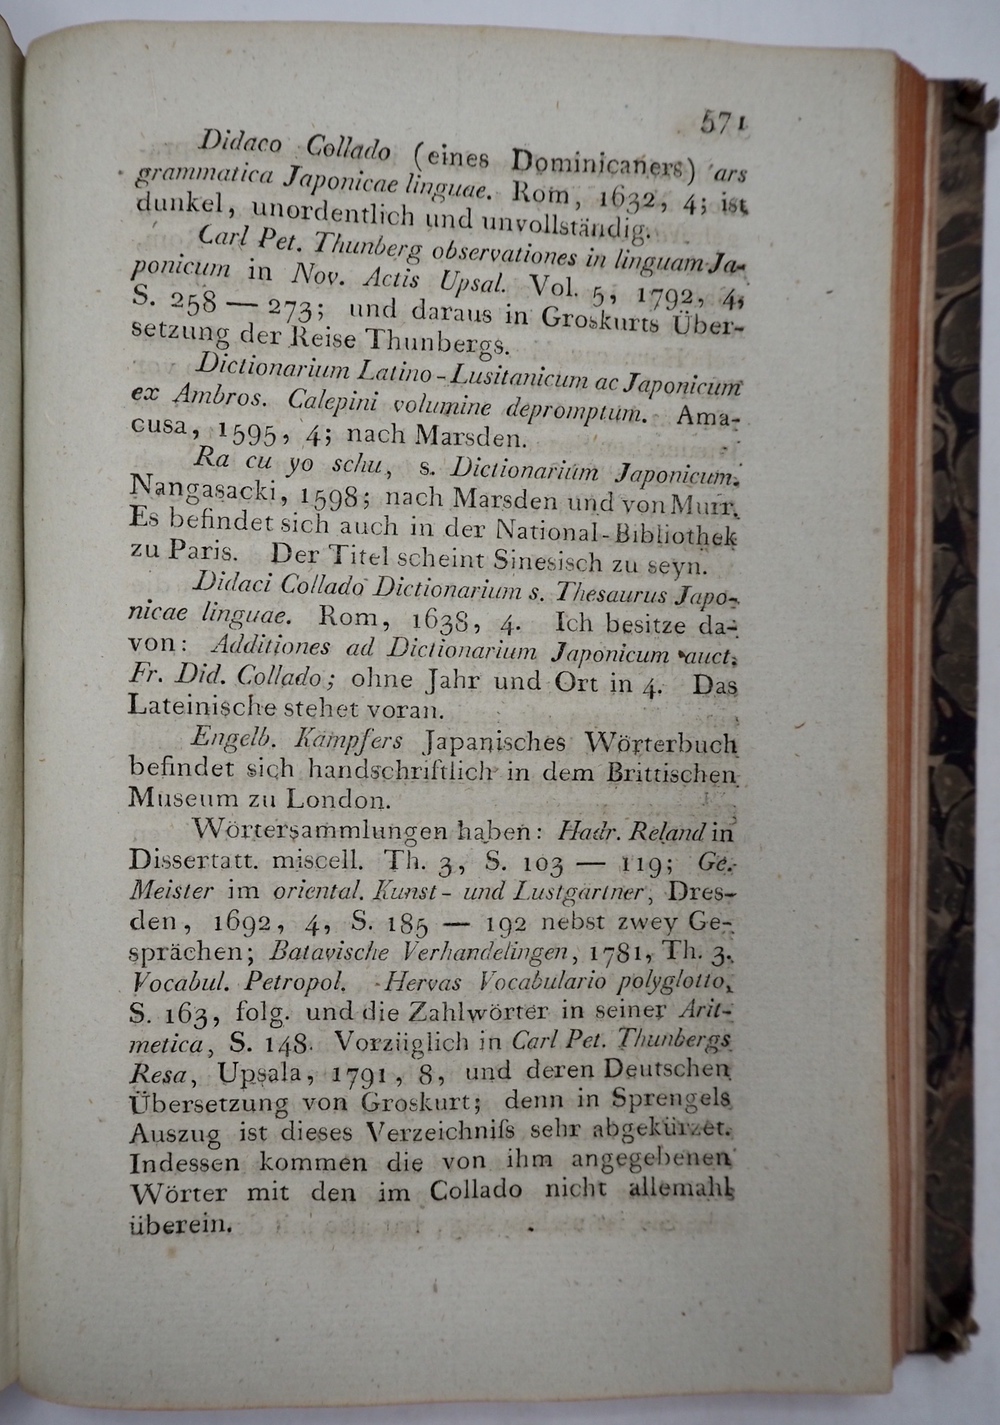 571
Didaco Collado (eines Dominicaners) ars
grammatica Japonicae linguae. Rom, 1632, 4; ist
dunkel, unordentlich und unvollständig.
Carl Pet. Thunberg observationes in linguam Ja-
ponicum in Nov. Actis Upsal. Vol. 5, 1792, 4,
S. 258 — 273; und daraus in Groskurts Über-
setzung der Reise Thunbergs.
Dictionarium Latino-Lusitanicum ac Japonicum
ex Ambros. Calepini volumine depromptum. Ama-
cusa, 1595, 4; nach Marsden.
Ra cu yo schu, s. Dictionarium Japonicum.
Nangasacki, 1598; nach Marsden und von Murr.
Es befindet sich auch in der National-Bibliothek
zu Paris. Der Titel scheint Sinesisch zu seyn.
Didaci Collado Dictionarium s. Thesaurus Japo-
nicae linguae. Rom, 1638, 4. Ich besitze da-
von: Additiones ad Dictionarium Japonicum auct.
Fr. Did. Collado; ohne Jahr und Ort in 4. Das
Lateinische stehet voran.
Engelb. Kämpfers Japanisches Wörterbuch
befindet sich handschriftlich in dem Brittischen
Museum zu London.
Wörtersammlungen haben: Hadr. Reland in
Dissertatt. miscell. Th. 3, S. 103 — 119; Ge.
Meister im oriental. Kunst- und Lustgärtner, Dres-
den, 1692, 4, S. 185 — 192 nebst zwey Ge-
sprächen; Batavische Verhandelingen, 1781, Th. 3.
Vocabul. Petropol. Hervas Vocabulario polyglotto,
S. 163, folg. und die Zahlwörter in seiner Arit-
metica, S. 148. Vorzüglich in Carl Pet. Thunbergs
Resa, Upsala, 1791, 8, und deren Deutschen
Übersetzung von Groskurt; denn in Sprengels
Auszug ist dieses Verzeichniſs sehr abgekürzet.
Indessen kommen die von ihm angegebenen
Wörter mit den im Collado nicht allemahl
überein.